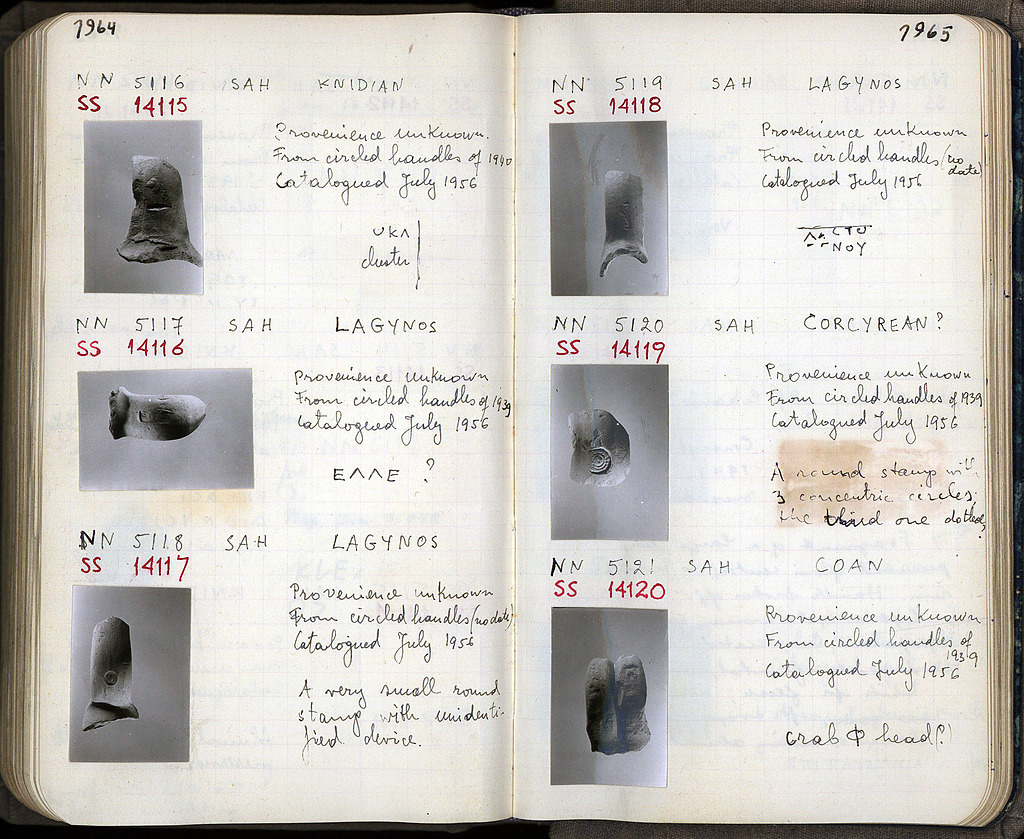 1964
NN 5116 SAH KNIDIAN
SS 14115
Provenience unknown.
From circled handles of 1940
Catalogued July 1956
cluster
NN 5117 SAH LAGYNOS
SS 14116
Provenience unknown
From circled handles of 1939
Catalogued July 1956
ΕΛΛΕ ?
NN 5118 SAH LAGYNOS
SS 14117
Provenience unknown
From circled handles (no date)
Catalogued July 1956
A very small round
stamp with unidenti-
fied device.
1965
NN 5119 SAH LAGYNOS
SS 14118
Provenience unknown
From circled handles (no
date)
Catalogued July 1956
ΝΟΥ
NN 5120 SAH CORCYREAN?
SS 14119
Provenience unknown
From circled handles of 1939
Catalogued July 1956
A round stamp with
3 concentric circles;
the third one dotted?
NN 5121 SAH COAN
SS 14120
Provenience unknown
From circled handles of
1939
Catalogued July 1956
crab Φ head(?)